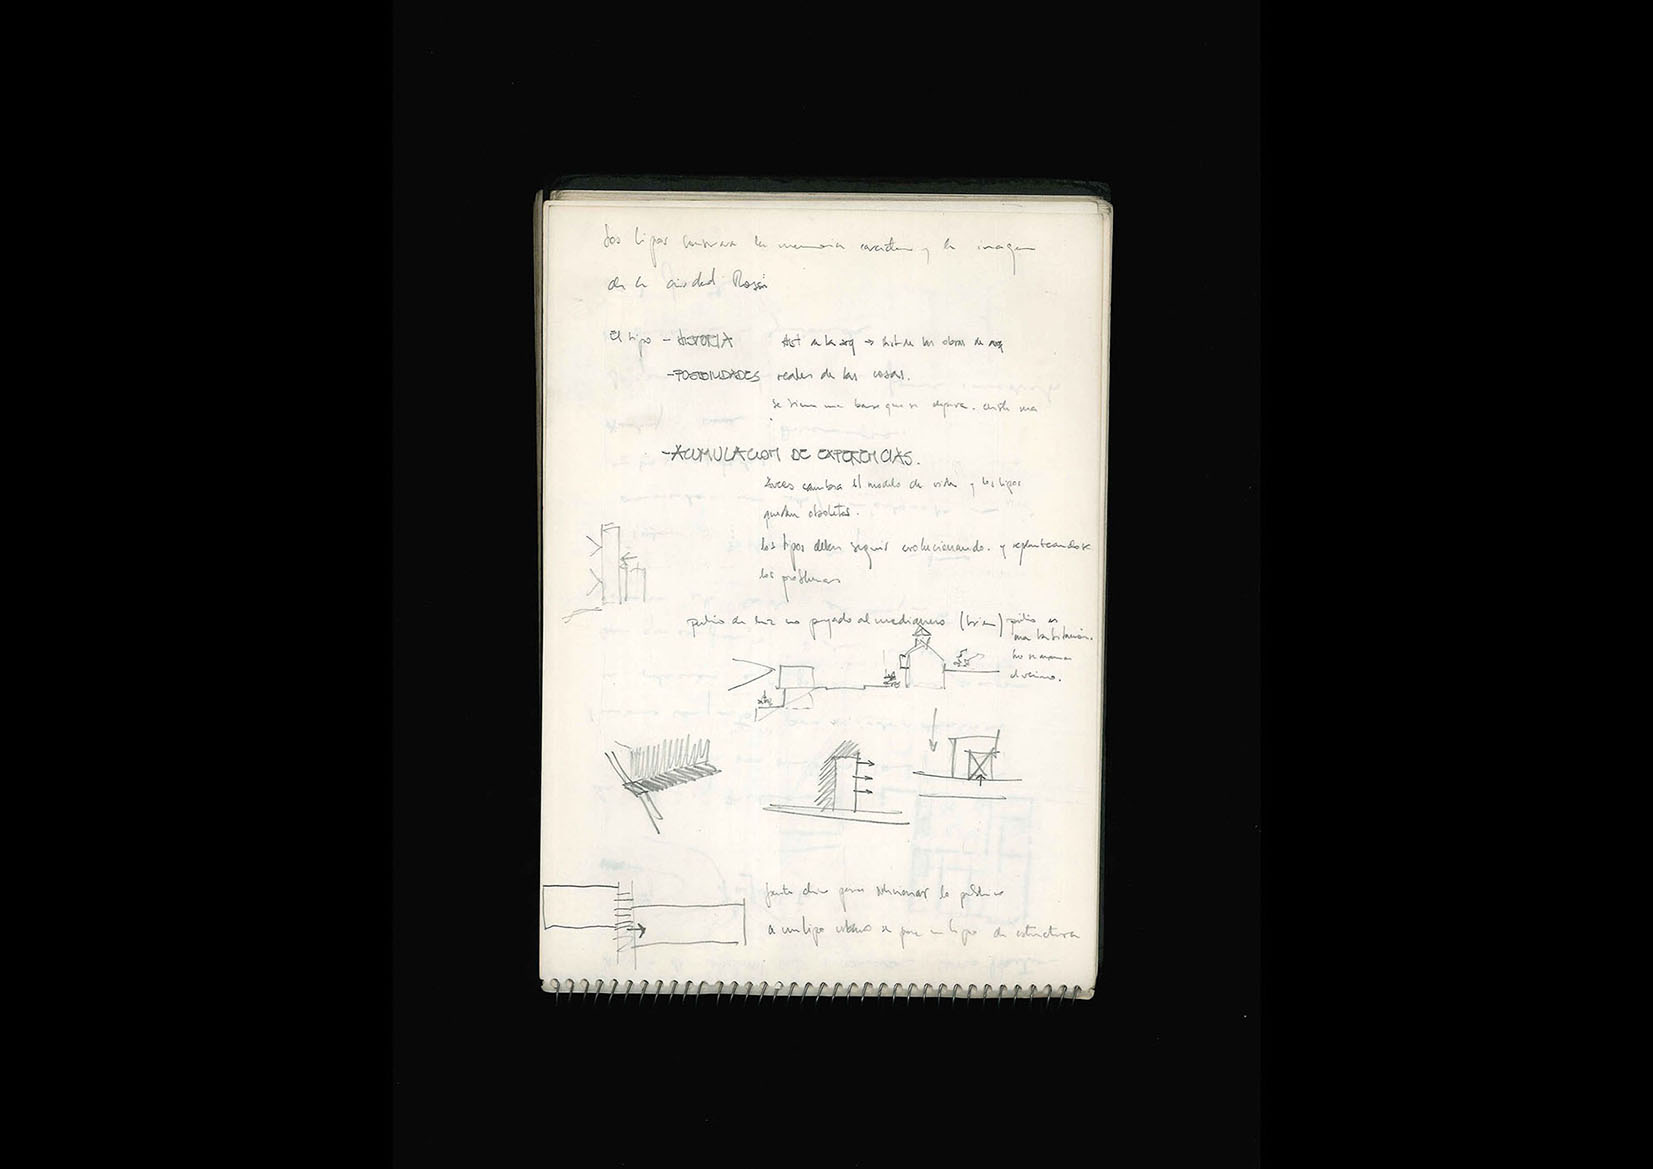 Los tipos la memoria y la imagen
de la ciudad Rossi
El tipo - HISTORIA Hist de la arq → hist de las obras de arq
- POSIBILIDADES reales de las cosas.
se tiene una base que se depura.
- ACUMULACION DE EXPERIENCIAS.
cambia el modelo de vida y los tipos
quedan obsoletos.
los tipos deben seguir evolucionando. y replanteandose
los problemas
patio de luz no pegado al medianero (bien) patio es
una habitación.
el vecino.
para relacionar lo público
a un tipo urbano se pone un tipo de estructura